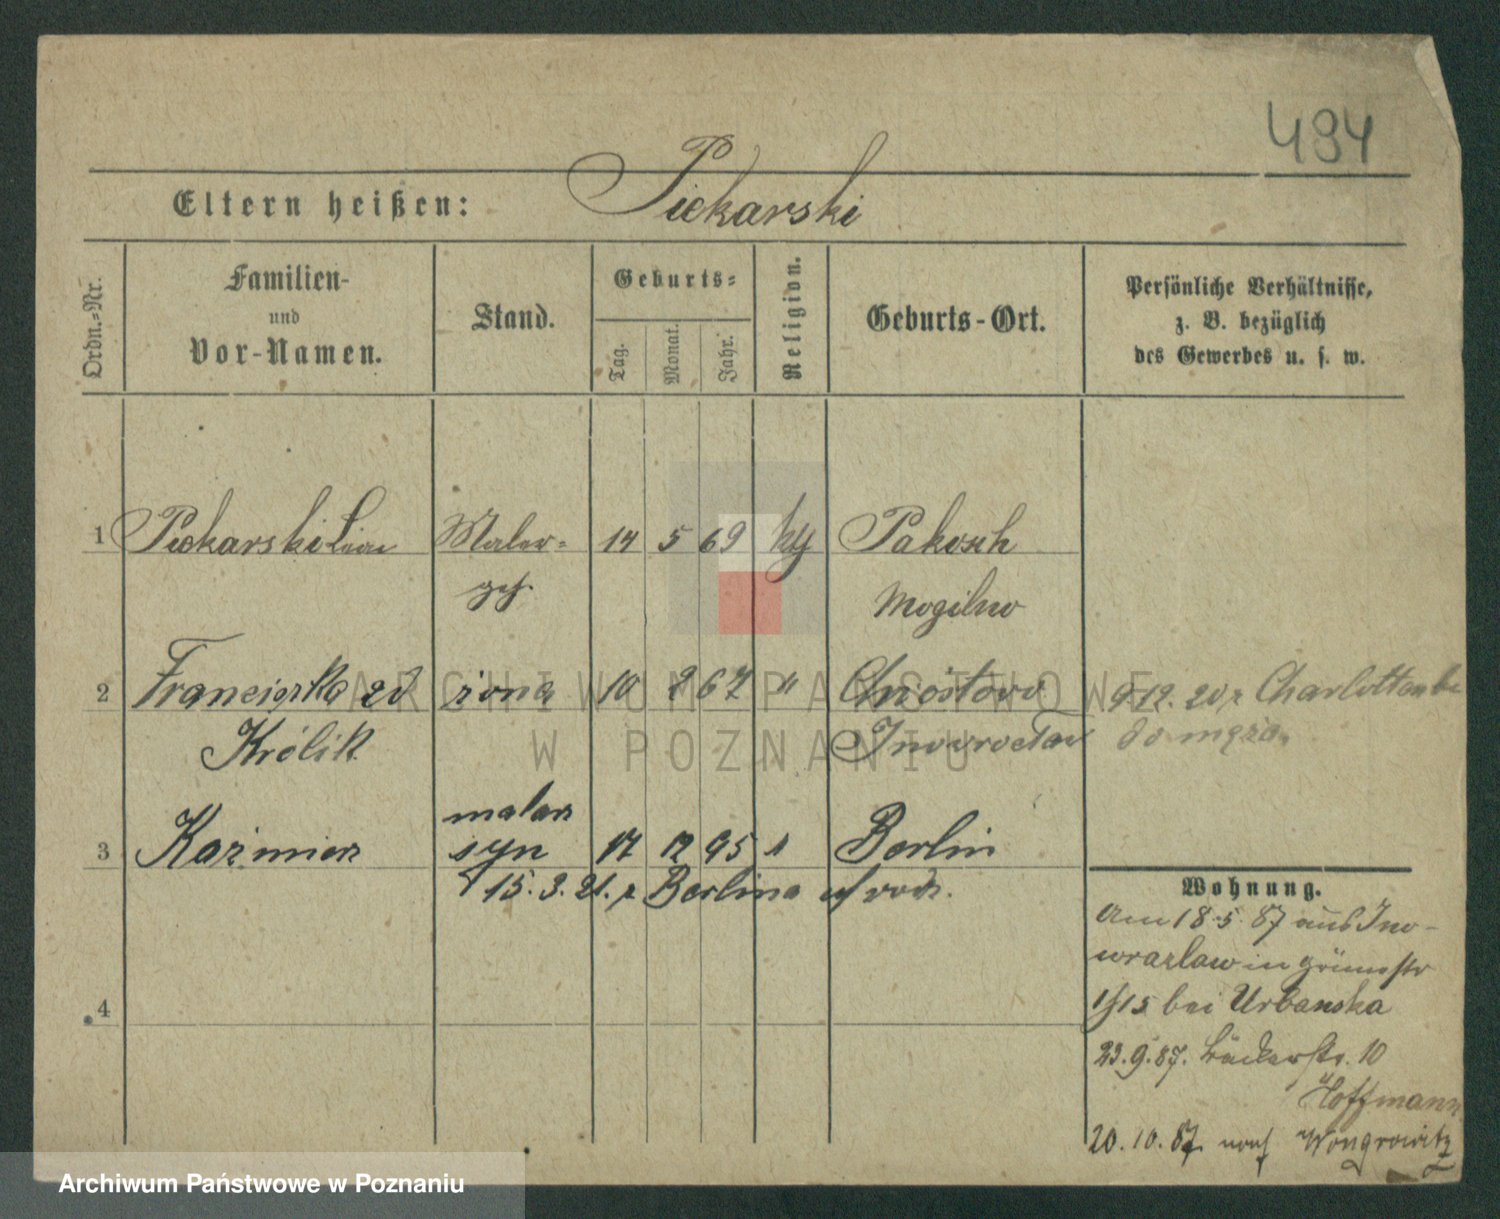 494
Eltern heißen: Piekarski
Ordn.-Nr.
Familien-
und
Vor-Namen.
Stand.
Geburts-
Tag.
Monat.
Jahr.
Religion.
Geburts-Ort.
Persönliche Verhältnisse,
z. B. bezüglich
des Gewerbes u. s. w.
1 Piekarski Maler- 14 5 69 Pakosch
Mogilno
2 Franciszka zd żona 10 2 67 " Chrostowo 9.12. 20 z Charlottenbu
Królik Inowrocław do męża.
malarz
3 Kazimierz syn 17 12 95 Berlin
15. 3. 21. z Berlina
Wohnung.
Am 18.5.87 aus Ino-
wrazlaw in grünestr
15 bei Urbanska
23.9.87. Bäckerstr. 10
Hoffmann
20.10.87 nach Wongrowitz
4
ARCHIWUM PAŃSTWOWE
W POZNANIU
Archiwum Państwowe w Poznaniu